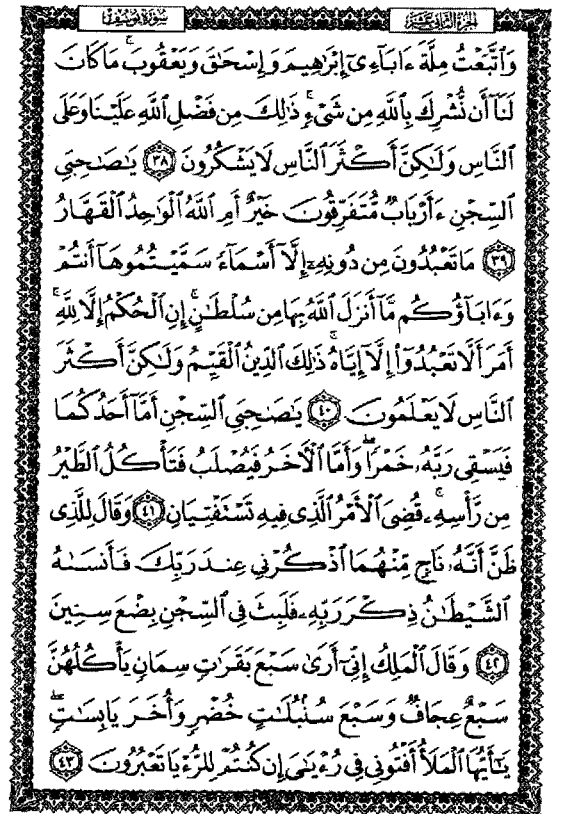 الجزء الثاني عشر
سورة يوسف
وَٱتَّبَعْتُ مِلَّةَ ءَابَآءِىٓ إِبْرَٰهِيمَ وَإِسْحَٰقَ وَيَعْقُوبَۚ مَا كَانَ
لَنَآ أَن نُّشْرِكَ بِٱللَّهِ مِن شَىْءٍۚ ذَٰلِكَ مِن فَضْلِ ٱللَّهِ عَلَيْنَا وَعَلَى
ٱلنَّاسِ وَلَٰكِنَّ أَكْثَرَ ٱلنَّاسِ لَا يَشْكُرُونَ ٣٨ يَٰصَىٰحِبَىِ
ٱلسِّجْنِ ءَأَرْبَابٌ مُّتَفَرِّقُونَ خَيْرٌ أَمِ ٱللَّهُ ٱلْوَٰحِدُ ٱلْقَهَّارُ
٣٩ مَا تَعْبُدُونَ مِن دُونِهِۦٓ إِلَّآ أَسْمَآءً سَمَّيْتُمُوهَآ أَنتُمْ
وَءَابَآؤُكُم مَّآ أَنزَلَ ٱللَّهُ بِهَا مِن سُلْطَٰنٍۚ إِنِ ٱلْحُكْمُ إِلَّا لِلَّهِۚ
أَمَرَ أَلَّا تَعْبُدُوٓا۟ إِلَّآ إِيَّاهُۚ ذَٰلِكَ ٱلدِّينُ ٱلْقَيِّمُ وَلَٰكِنَّ أَكْثَرَ
ٱلنَّاسِ لَا يَعْلَمُونَ ٤٠ يَٰصَىٰحِبَىِ ٱلسِّجْنِ أَمَّآ أَحَدُكُمَا
فَيَسْقِى رَبَّهُۥ خَمْرًاۖ وَأَمَّا ٱلْءَاخَرُ فَيُصْلَبُ فَتَأْكُلُ ٱلطَّيْرُ
مِن رَّأْسِهِۦۚ قُضِىَ ٱلْأَمْرُ ٱلَّذِى فِيهِ تَسْتَفْتِيَانِ ٤١ وَقَالَ لِلَّذِى
ظَنَّ أَنَّهُۥ نَاجٍ مِّنْهُمَا ٱذْكُرْنِى عِندَ رَبِّكَ فَأَنسَىٰهُ
ٱلشَّيْطَٰنُ ذِكْرَ رَبِّهِۦ فَلَبِثَ فِى ٱلسِّجْنِ بِضْعَ سِنِينَ
٤٢ وَقَالَ ٱلْمَلِكُ إِنِّىٓ أَرَىٰ سَبْعَ بَقَرَٰتٍ سِمَانٍ يَأْكُلُهُنَّ
سَبْعٌ عِجَافٌ وَسَبْعَ سُنۢبُلَٰتٍ خُضْرٍ وَأُخَرَ يَابِسَٰتٍۖ
يَٰٓأَيُّهَا ٱلْمَلَأُ أَفْتُونِى فِى رُءْيَٰىَ إِن كُنتُمْ لِلرُّءْيَا تَعْبُرُونَ ٤٣